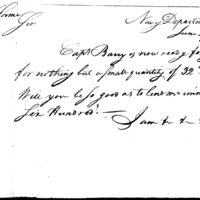 Sir
Navy Depart
June
Capt Barry is now ready for
for nothing but a small quantity of 32
Will you be so good as to lend me
Six Hundred? —
I am &